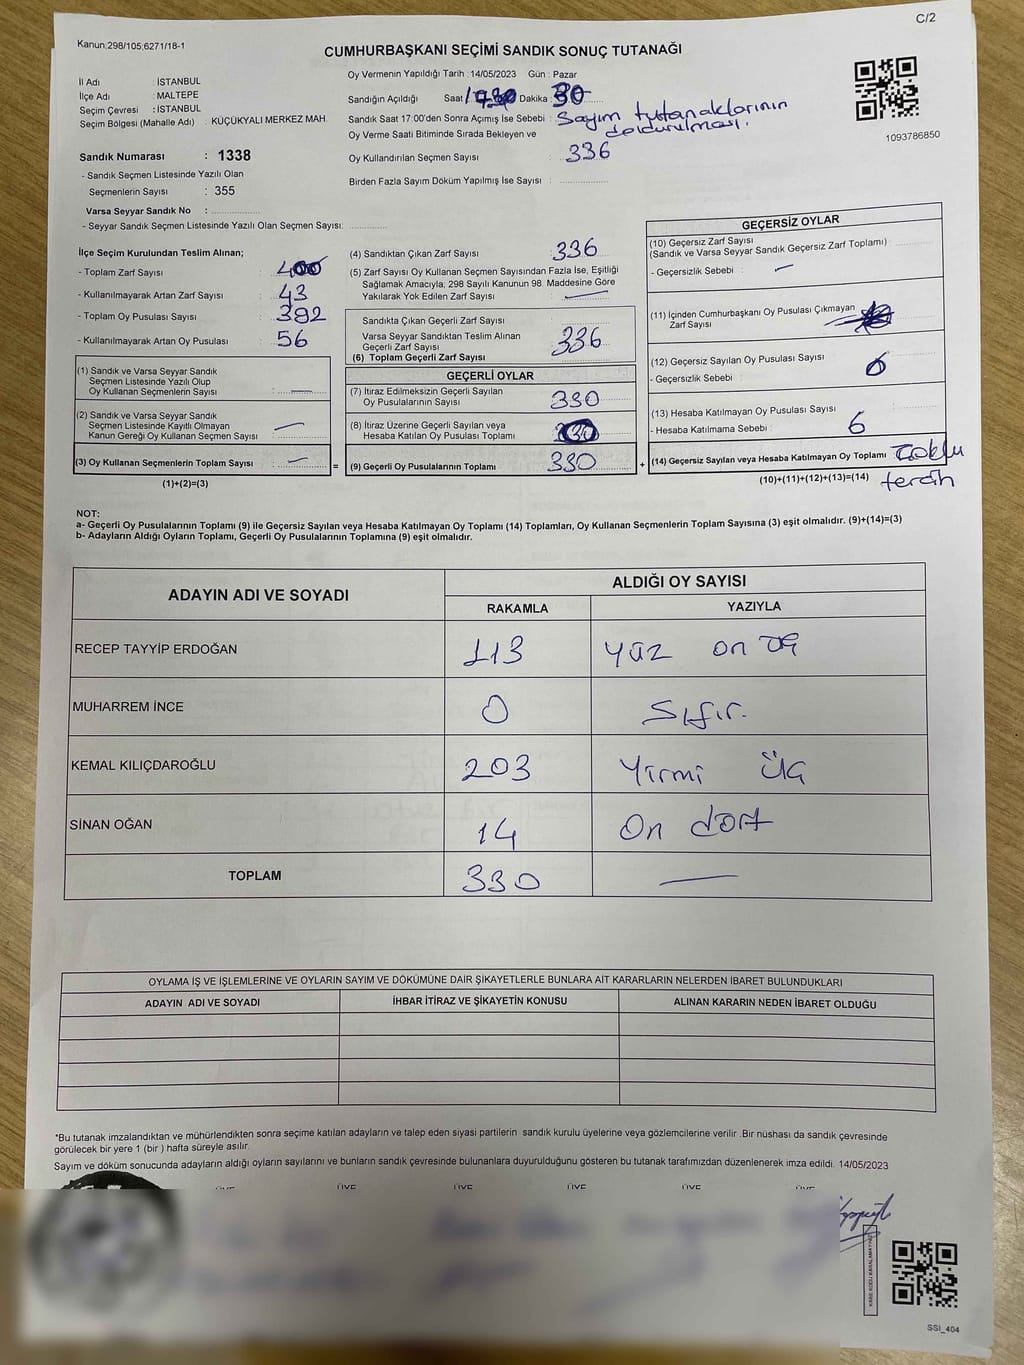 C/2
Kanun;298/105;6271/18-1
CUMHURBAŞKANI SEÇİMİ SANDIK SONUÇ TUTANAĞI
İl Adı : İSTANBUL
İlçe Adı : MALTEPE
Seçim Çevresi : İSTANBUL
Seçim Bölgesi (Mahalle Adı) : KÜÇÜKYALI MERKEZ MAH.
Sandık Numarası : 1338
- Sandık Seçmen Listesinde Yazılı Olan
Seçmenlerin Sayısı : 355
Varsa Seyyar Sandık No :
- Seyyar Sandık Seçmen Listesinde Yazılı Olan Seçmen Sayısı:
Oy Vermenin Yapıldığı Tarih : 14/05/2023 Gün : Pazar
Sandığın Açıldığı Saat Dakika 30
Sandık Saat 17:00'den Sonra Açımış İse Sebebi : Sayım tutanaklarının
doldurulması.
Oy Verme Saati Bitiminde Sırada Bekleyen ve
Oy Kullandırılan Seçmen Sayısı : 336
Birden Fazla Sayım Döküm Yapılmış İse Sayısı :
1093786850
İlçe Seçim Kurulundan Teslim Alınan;
- Toplam Zarf Sayısı : 400
- Kullanılmayarak Artan Zarf Sayısı : 43
- Toplam Oy Pusulası Sayısı : 392
- Kullanılmayarak Artan Oy Pusulası : 56
(1) Sandık ve Varsa Seyyar Sandık
Seçmen Listesinde Yazılı Olup
Oy Kullanan Seçmenlerin Sayısı : —
(2) Sandık ve Varsa Seyyar Sandık
Seçmen Listesinde Kayıtlı Olmayan
Kanun Gereği Oy Kullanan Seçmen Sayısı : —
(3) Oy Kullanan Seçmenlerin Toplam Sayısı : —
(1)+(2)=(3)
(4) Sandıktan Çıkan Zarf Sayısı : 336
(5) Zarf Sayısı Oy Kullanan Seçmen Sayısından Fazla İse, Eşitliği
Sağlamak Amacıyla; 298 Sayılı Kanunun 98. Maddesine Göre
Yakılarak Yok Edilen Zarf Sayısı : —
Sandıkta Çıkan Geçerli Zarf Sayısı :
Varsa Seyyar Sandıktan Teslim Alınan
Geçerli Zarf Sayısı
(6) Toplam Geçerli Zarf Sayısı : 336
GEÇERLİ OYLAR
(7) İtiraz Edilmeksizin Geçerli Sayılan
Oy Pusulalarının Sayısı : 330
(8) İtiraz Üzerine Geçerli Sayılan veya
Hesaba Katılan Oy Pusulası Toplamı :
= (9) Geçerli Oy Pusulalarının Toplamı : 330 +
GEÇERSİZ OYLAR
(10) Geçersiz Zarf Sayısı
(Sandık ve Varsa Seyyar Sandık Geçersiz Zarf Toplamı) :
- Geçersizlik Sebebi : —
(11) İçinden Cumhurbaşkanı Oy Pusulası Çıkmayan
Zarf Sayısı
(12) Geçersiz Sayılan Oy Pusulası Sayısı :
- Geçersizlik Sebebi :
(13) Hesaba Katılmayan Oy Pusulası Sayısı :
- Hesaba Katılmama Sebebi : 6
(14) Geçersiz Sayılan veya Hesaba Katılmayan Oy Toplamı : Çoklu
(10)+(11)+(12)+(13)=(14) tercih
NOT:
a- Geçerli Oy Pusulalarının Toplamı (9) ile Geçersiz Sayılan veya Hesaba Katılmayan Oy Toplamı (14) Toplamları, Oy Kullanan Seçmenlerin Toplam Sayısına (3) eşit olmalıdır. (9)+(14)=(3)
b- Adayların Aldığı Oyların Toplamı, Geçerli Oy Pusulalarının Toplamına (9) eşit olmalıdır.
ADAYIN ADI VE SOYADI ALDIĞI OY SAYISI
RAKAMLA YAZIYLA
RECEP TAYYİP ERDOĞAN 113 Yüz on üç
MUHARREM İNCE 0 Sıfır.
KEMAL KILIÇDAROĞLU 203 Yirmi üç
SİNAN OĞAN 14 On dört
TOPLAM 330 —
OYLAMA İŞ VE İŞLEMLERİNE VE OYLARIN SAYIM VE DÖKÜMÜNE DAİR ŞİKAYETLERLE BUNLARA AİT KARARLARIN NELERDEN İBARET BULUNDUKLARI
ADAYIN ADI VE SOYADI İHBAR İTİRAZ VE ŞİKAYETİN KONUSU ALINAN KARARIN NEDEN İBARET OLDUĞU
*Bu tutanak imzalandıktan ve mühürlendikten sonra seçime katılan adayların ve talep eden siyasi partilerin sandık kurulu üyelerine veya gözlemcilerine verilir .Bir nüshası da sandık çevresinde
görülecek bir yere 1 (bir ) hafta süreyle asılır.
Sayım ve döküm sonucunda adayların aldığı oyların sayılarını ve bunların sandık çevresinde bulunanlara duyurulduğunu gösteren bu tutanak tarafımızdan düzenlenerek imza edildi. 14/05/2023
ÜYE ÜYE ÜYE ÜYE ÜYE ÜYE
KARE KODU KARALAMAYINIZ
SSİ_404